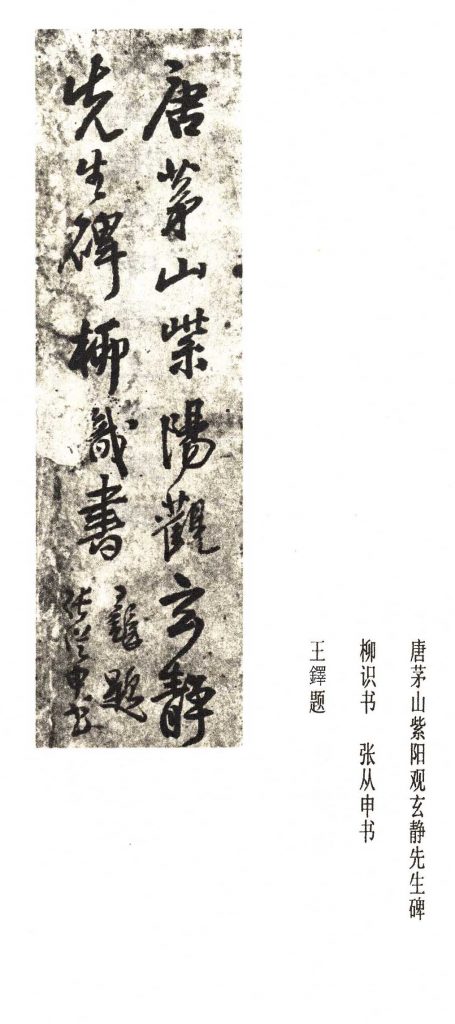 唐茅山紫阳观玄静先生碑
柳识书 张从申书
王鐸题
唐茅山紫陽觀玄静
先生碑柳識書
題
張從申書